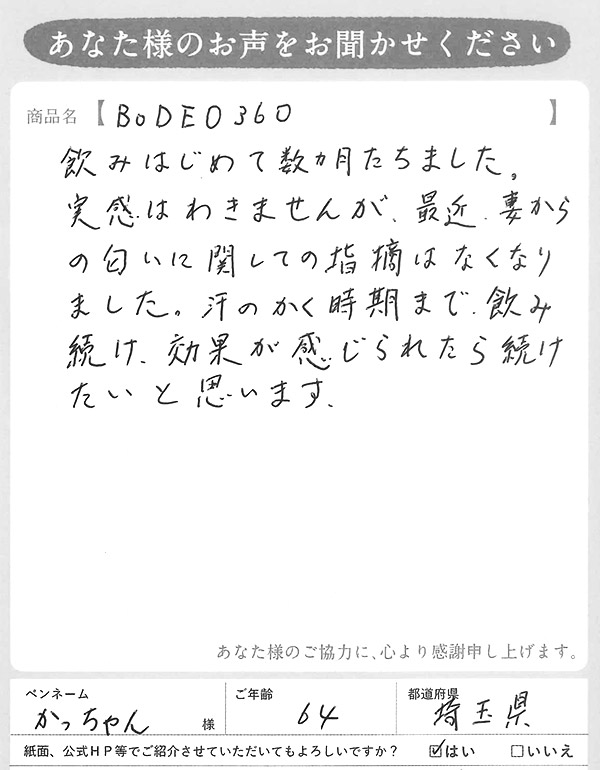 あなた様のお声をお聞かせください
商品名 【 BoDEO 360 】
飲みはじめて数ヵ月たちました。
実感はわきませんが、最近、妻から
の匂いに関しての指摘はなくなり
ました。汗のかく時期まで、飲み
続け、効果が感じられたら続け
たいと思います、
あなた様のご協力に、心より感謝申し上げます。
ペンネーム ご年齢 都道府県
かっちゃん 様 64 埼玉県
紙面、公式HP等でご紹介させていただいてもよろしいですか？ ☑はい □いいえ